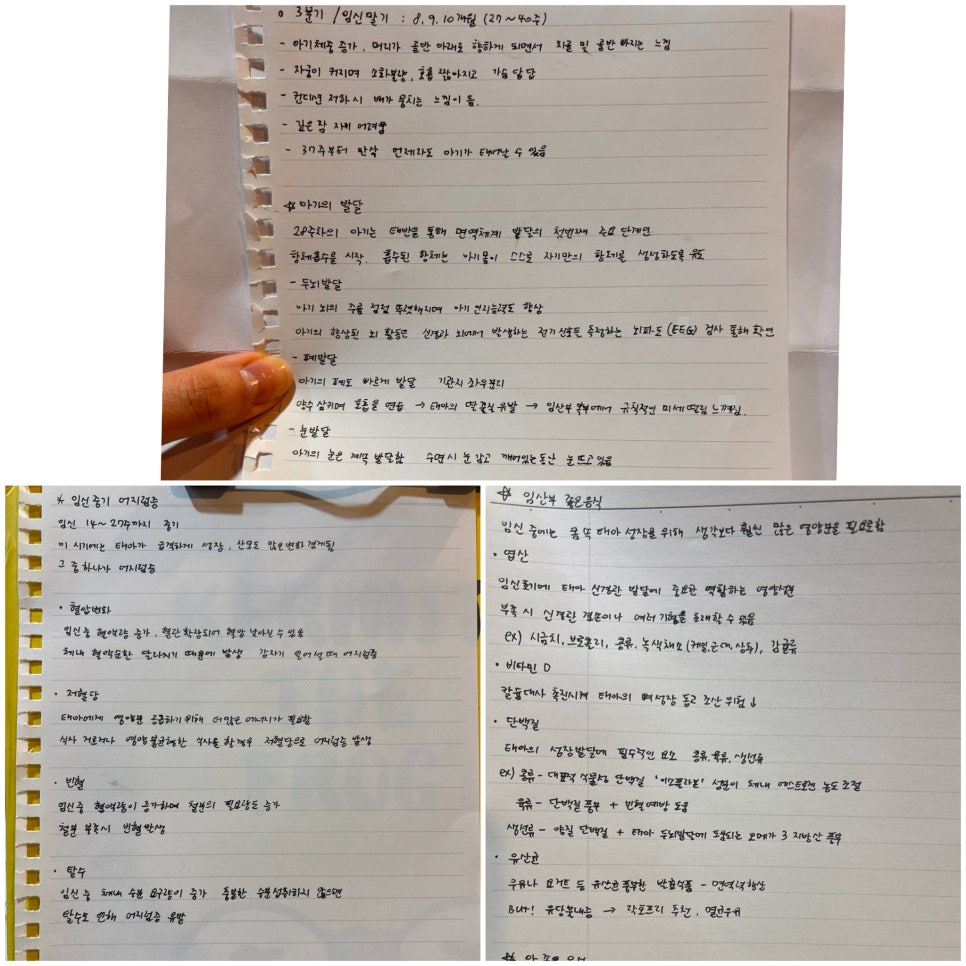 o 3분기 / 임신말기 : 8, 9. 10개월 (27~40주)
- 아기체중 증가, 머리가 골반 아래로 향하게 되면서 치골 및 골반 빠지는 느낌
- 자궁이 커지며 소화불량, 호흡 짧아지고 가슴 답답
- 컨디션 저하 시 배가 뭉치는 느낌이 듬.
- 깊은 잠 자기 어려움
- 37주부터 만삭 언제라도 아기가 태어날 수 있음
☆ 아기의 발달
28주차의 아기는 태반을 통해 면역체계 발달의 첫번째 주요 단계인
항체흡수를 시작. 흡수된 항체는 아기몸이 스스로 자기만의 항체를 생성하도록 유도
- 두뇌발달
아기 뇌의 주름 점점 뚜렷해지며 아기 인지능력도 향상
아기의 향상된 뇌 활동은 신경과 뇌에서 발생하는 전기신호를 측정하는 뇌파도 (EEG) 검사 통해 확인
- 폐발달
아기의 폐도 빠르게 발달 기관지 좌우분리
양수 삼키며 호흡을 연습 → 태아의 딸꾹질 유발 → 임산부 복부에서 규칙적인 미세 떨림 느껴짐.
- 눈발달
아기의 눈은 계속 발달함 수면시 눈 감고 깨어있는 동안 눈 뜨고 있음
* 임신중기 어지럼증
임신 14~27주까지 중기
이 시기에는 태아가 급격하게 성장, 산모도 많은 변화 겪게됨
그 중 하나가 어지럼증
• 혈압변화
임신 중 혈액량 증가, 혈관 확장되어 혈압 낮아질 수 있음
체내 혈액순환 달라지기 때문에 발생 갑자기 일어설 때 어지럼증
• 저혈당
태아에게 영양분 공급하기 위해 더 많은 에너지가 필요함
식사 거르거나 영양 불균형한 식사를 할 경우 저혈당으로 어지럼증 발생
• 빈혈
임신 중 혈액량이 증가하며 철분의 필요량도 증가
철분 부족시 빈혈 발생
• 탈수
임신 중 체내 수분 요구량이 증가 충분한 수분섭취하지 않으면
탈수로 인해 어지럼증 유발
☆ 임산부 좋은음식
임신 중에는 몸 또 태아 성장을 위해 생각보다 훨씬 많은 영양분을 필요로함
• 엽산
임신초기에 태아 신경관 발달에 중요한 역할하는 영양성분
부족 시 신경관 결손이나 여러 기형을 초래할 수 있음
ex) 시금치, 브로콜리, 콩류, 녹색채소 (케일, 근대, 상추), 감귤류
• 비타민 D
칼슘대사 촉진시켜 태아의 뼈성장 돕고 조산 위험↓
• 단백질
태아의 성장발달에 필수적인 요소 콩류, 육류, 생선류
ex) 콩류 - 대표적 식물성 단백질 '이소플라본' 성분이 체내 에스트로겐 농도 조절
육류 - 단백질 풍부 + 빈혈예방 도움
생선류 - 양질 단백질 + 태아 두뇌발달에 도움되는 오메가 3 지방산 풍부
• 유산균
우유나 요거트 등 유산균 풍부한 발효식품 - 면역력 향상
But! 유당불내증 → 락토프리 추천, 멸균우유